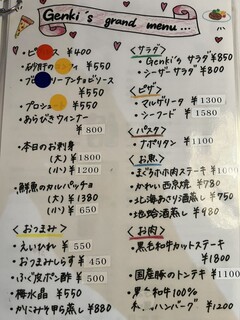 Genki's grand menu...
・ピ ¥400
・砂肝の ¥550
・ブ アンチョビソース ¥550
・プロシュート ¥550
・あらびきウインナー
¥800
・本日のお刺身
(大) ¥1800
(小) ¥1200
・鮮魚のカルパッチョ
(大) ¥1380
(小) ¥650
<おつまみ>
・えいひれ ¥550
・おつまみしらす ¥450
・ふぐ皮ポン酢 ¥500
・梅水晶 ¥550
・かにみそ甲ら蒸し ¥880
<サラダ>
・Genki's サラダ ¥850
・シーザーサラダ ¥800
<ピザ>
・マルゲリータ ¥1300
・シーフード ¥1580
<パスタ>
・ナポリタン ¥1100
<お魚>
・まぐろホホ肉ステーキ ¥1100
・かれい西京焼 ¥780
・北海あさり酒蒸し ¥750
・地蛤酒蒸し ¥980
<お肉>
・黒毛和牛カットステーキ
¥1800
・国産豚のトンテキ ¥1100
・黒 和牛100%
ハンバーグ ¥1200